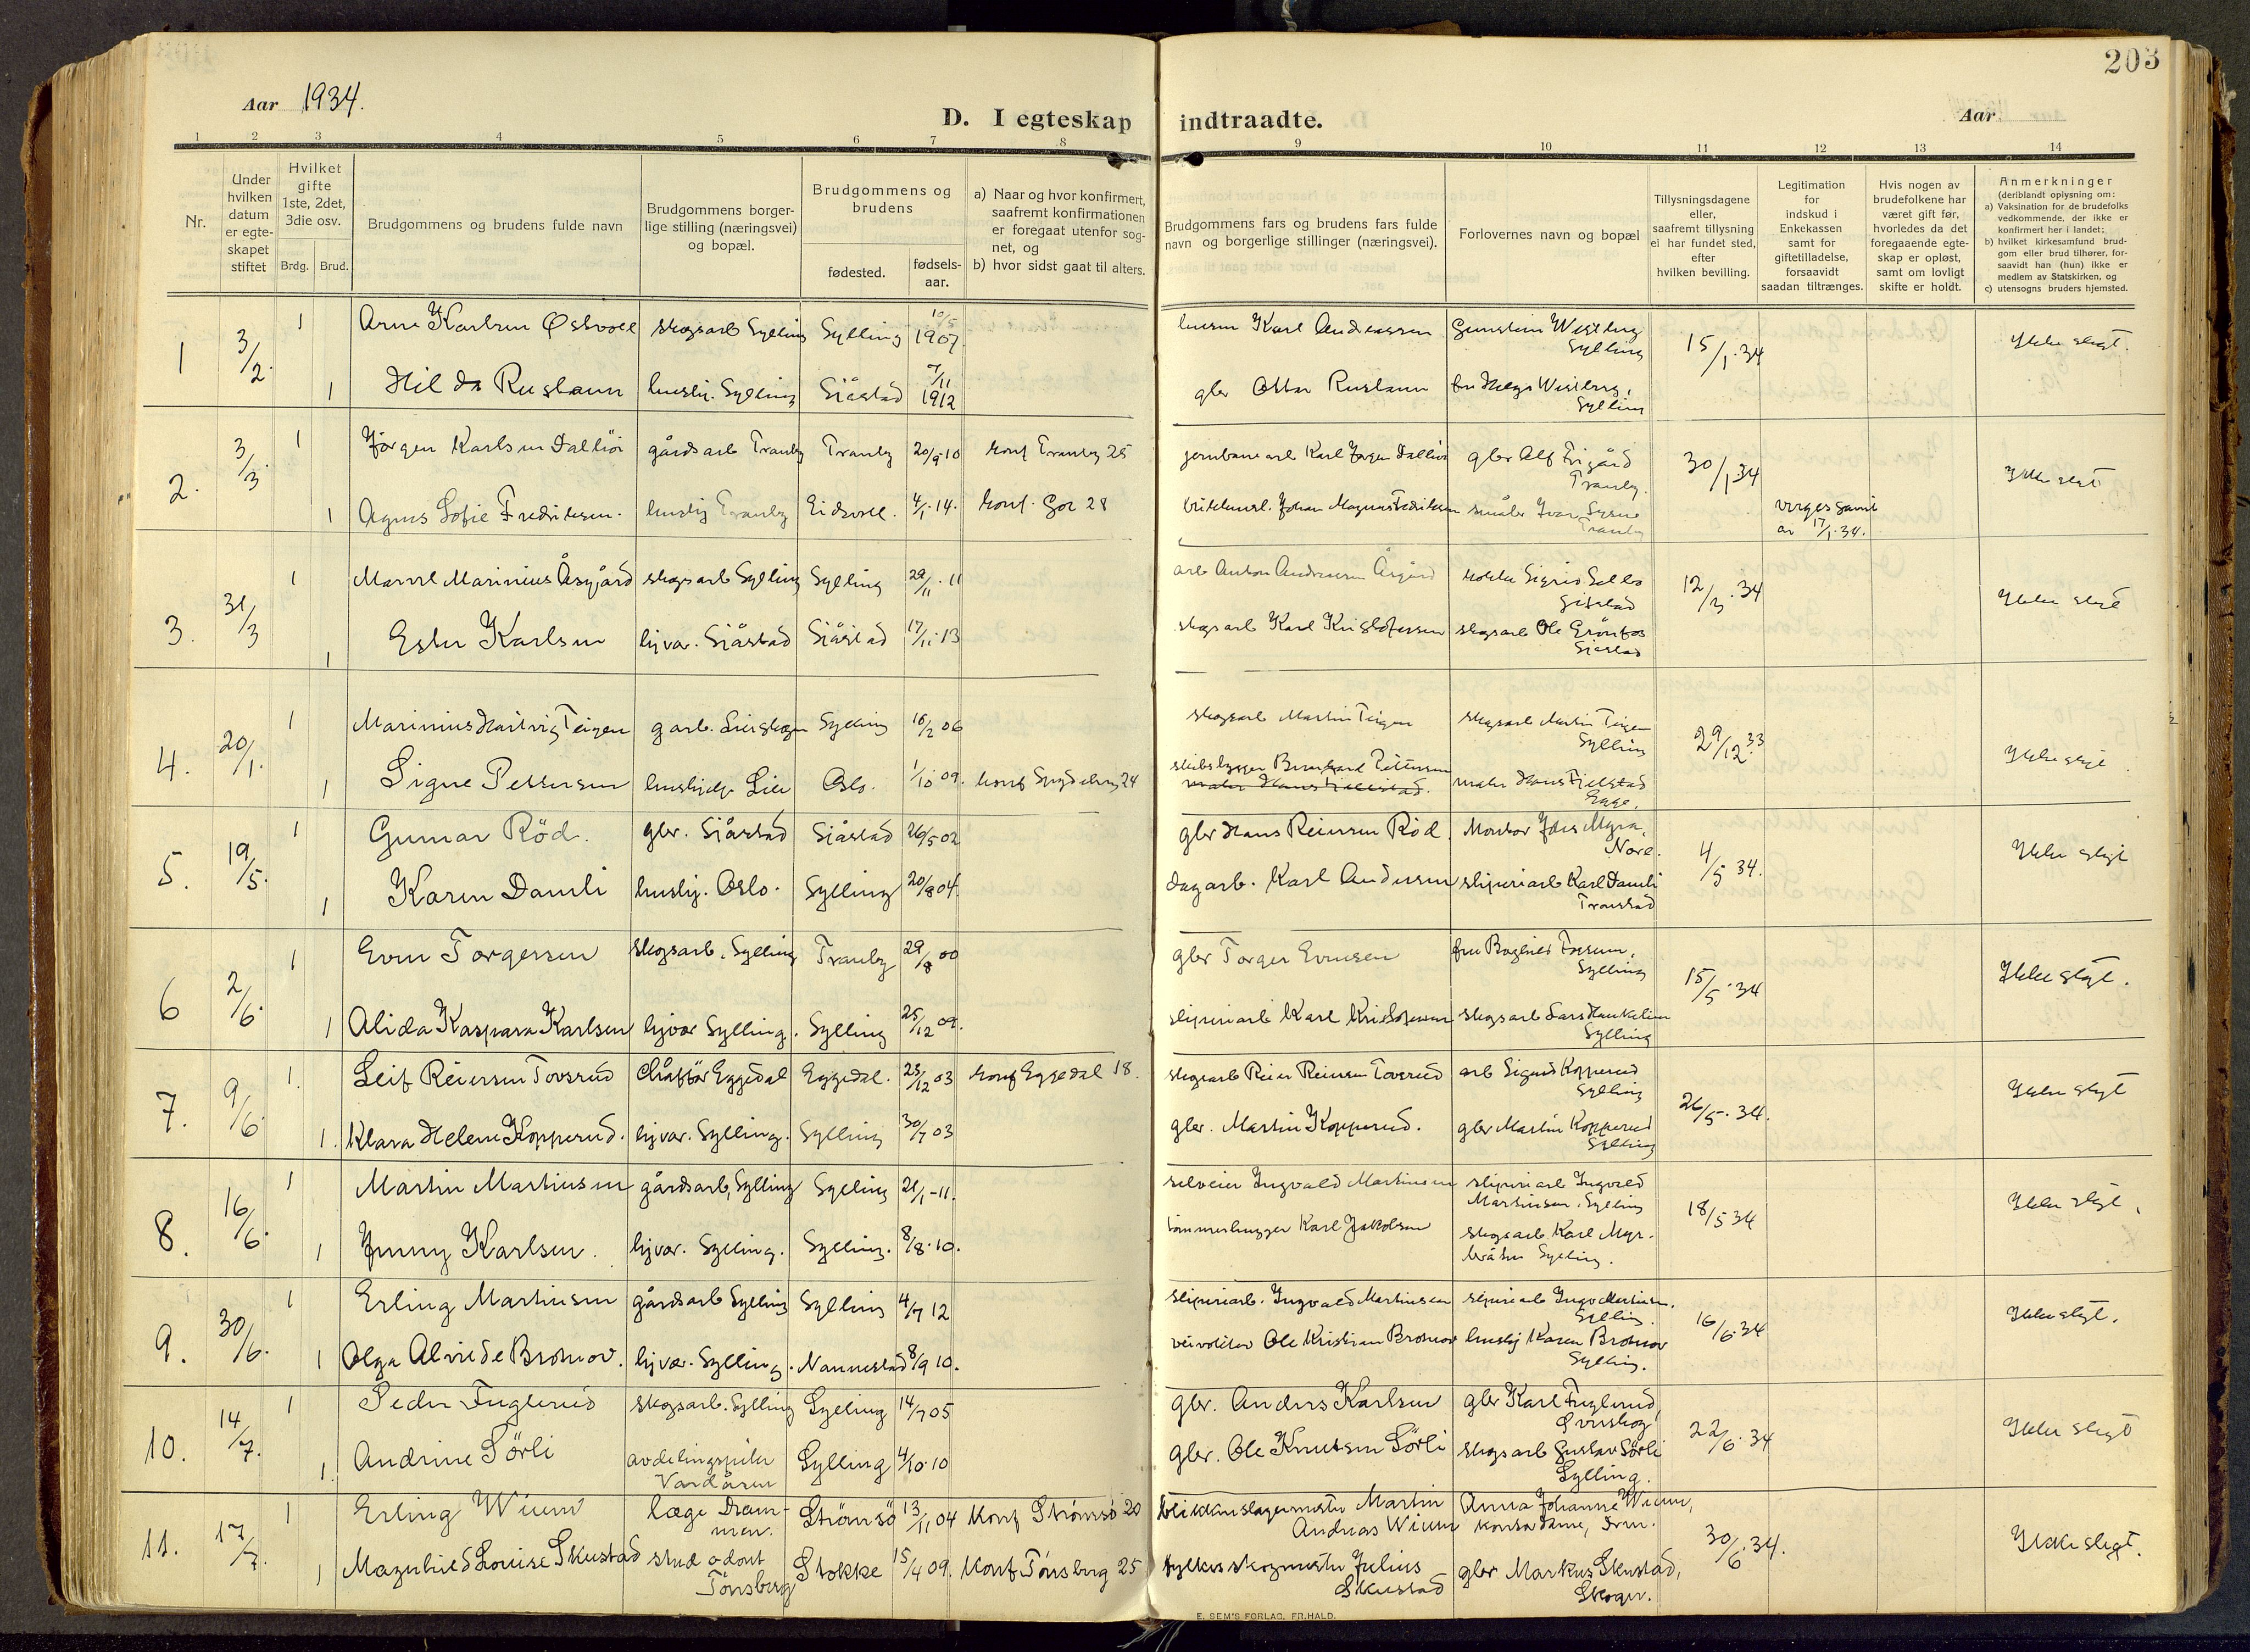 203
Aar 1934.
D. I egteskap indtraadte.
Aar
1 2 3 4 5 6 7 8 9 10 11 12 13 14
Nr.
Under hvilken datum er egte-skapet stiftet
Hvilket gifte 1ste, 2det, 3die osv.
Brdg. Brud.
Brudgommens og brudens fulde navn
Brudgommens borger-lige stilling (næringsvei) og bopæl.
Brudgommens og brudens
fødested.
fødsels-aar.
a) Naar og hvor konfirmert, saafremt konfirmationen er foregaat utenfor sog-net, og
b) hvor sidst gaat til alters.
Brudgommens fars og brudens fars fulde navn og borgerlige stillinger (næringsvei).
Forlovernes navn og bopæl
Tillysningsdagene eller, saafremt tillysning ei har fundet sted, efter hvilken bevilling.
Legitimation for indskud i Enkekassen samt for giftetilladelse, forsaavidt saadan tiltrænges.
Hvis nogen av brudefolkene har været gift før, hvorledes da det foregaaende egte-skap er opløst, samt om lovligt skifte er holdt.
Anmerkninger (deriblandt oplysning om:
a) Vaksination for de brudefolks vedkommende, der ikke er konfirmert her i landet;
b) hvilket kirkesamfund brud-gom eller brud tilhører, for-saavidt han (hun) ikke er medlem av Statskirken, og
c) utensogns bruders hjemsted.
1 3/2. 1 Arne Karlsen Østvoll skogsarb Sylling Sylling 1907 Karl Andreassen Sylling 15/1.34 Ikke slegt.
1 Hilda Rustann huslig. Sylling Sjåstad 7/11 1912 gbr Ottar Rustann fru Helga Sylling
2. 3/3. 1 Jörgen Karlsen gårdsarb Tranby Tranby 20/9.10 konf Tranby 25 jernbanearb Karl Jørgen gbr Alf Frigård Tranby. 30/1 34 Ikke slegt
1 Agnes Sofie Fredriksen. huslig Tranby Eidsvoll. 4/1.14. konf. Gol 28 Johan Magnus Fredriksen småbr Ivar Tranby verges samt. av 17/1.34.
3. 31/3 1 Marinius Åsgård skogsarb Sylling Sylling 29/11.11 arb Anton Andreassen Åsgård kokke Sigrid 12/3.34 Ikke slegt
1 Ester Karlsen hjvar. Sjåstad Sjåstad 17/11.13 skogsarb Karl Kristofersen skogsarb Ole Grönfos Sjåstad
4. 20/1. 1 Marinius Hartvig Teigen garb. Lierskogen Sylling 16/2 06 skogsarb Martin Teigen skogsarb Martin Teigen Sylling 29/12.33 Ikke slegt
1 Signe Pettersen hushjelp Lier Oslo. 1/10 09. konf 24 Bernhard Pettersen maler Hans Fjelstad
5. 19/5. 1 Gunnar Röd. gbr. Sjåstad Sjåstad 26/5 02 gbr Hans Reiersen Röd Montør Myra, Nore. 4/5 34. Ikke slegt
1 Karen Damli huslig. Oslo. Sylling 20/8 04. dagarb. Karl Andersen sliperiarb Karl Damli Tronstad
6 2/6. 1 Even Torgersen skogsarb. Sylling Tranby 29/8 00 gbr Torger Evensen fru Ragnhild Fossum, Sylling 15/5.34 Ikke slegt.
1 Alida Kaspara Karlsen hjvar Sylling. Sylling 25/12 09. sliperiarb Karl Kristofersen skogsarb Lars Sylling
7. 9/6. 1. Leif Reiersen Tovsrud Chåffør Eggedal Eggedal. 23/12 03 konf Eggedal 18. skogsarb Reier Reiersen Tovsrud arb Sigurd Kopperud Sylling 26/5.34. Ikke slegt
1. Klara Helene Kopperud. hjvar. Sylling. Sylling 30/7 03 gbr. Martin Kopperud. gbr Martin Kopperud Sylling
8. 16/6. 1 Martin Martinsen gårdsarb, Sylling Sylling 21/1-11. selveier Ingvald Martinsen sliperiarb Ingvald Martinsen, Sylling 18/5 34 Ikke slegt.
1 Jenny Karlsen. hjvar. Sylling. Sylling. 8/8.10. tømmerhugger Karl Jakobsen skogsarb Karl Myr-bråten Sylling.
9. 30/6. 1 Erling Martinsen gårdsarb Sylling Sylling 4/7 12 sliperiarb. Ingvald Martinsen sliperiarb Ingv Martinsen. Sylling. 16/6.34 Ikke slegt.
1 Olga Alvide Bromov. hjvar. Sylling. Nannestad 8/9 10. veivokter Ole Kristian Bromov huslig Karen Bromov Sylling.
10. 14/7. 1 Peder Fuglerud skogsarb. Sylling Sylling 14/7 05 gbr. Anders Karlsen gbr Karl Fuglerud, 22/6.34 Ikke slegt
1. Andrine Sörli Sylling 4/10.10 gbr. Ole Knutsen Sörli skogsarb Gustav Sörli Sylling.
11. 17/7. 1 Erling Wium læge Dram-men. Strömsö 13/11 04 Konf Strömsö 20 blikkenslagermester Martin Andreas Wium Anna Johanne Wium, kontordame, Drm. 30/6 34. Ikke slegt.
1 Magnhild Louise Skustad stud odont Tönsberg Stokke 15/4 09. Konf Tönsberg 25 fylkesskogmester Julius Skustad gbr Markus Skustad, Skoger.
E. SEM'S FORLAG, FR.HALD.